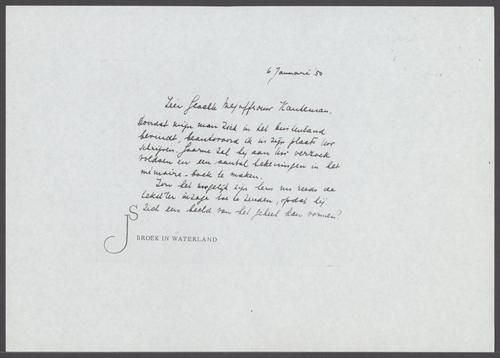 6 Januari '50
Zeer Geachte Mejuffrouw Kauteman.
Doordat mijn man zich in het buitenland
bevindt, beantwoord ik in zijn plaats Uw
schrijven. Gaarne zal hij aan Uw verzoek
voldoen en een aantal tekeningen in het
memoire-boek te maken.
Zou het mogelijk zijn hem nu reeds de
teksten inzage toe te zenden, opdat hij
zich een beeld van het geheel kan vormen?
JS
BROEK IN WATERLAND